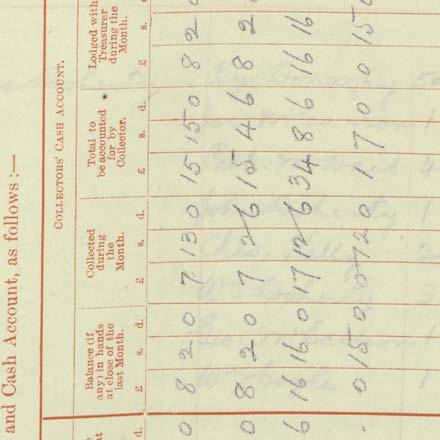 and Cash Account, as follows :—
COLLECTORS' CASH ACCOUNT.
Balance (if any) in hands at close of the last Month.
Collected during the Month.
Total to be accounted for by Collector.
Lodged with Treasurer during the Month.
d. £ s. d. £ s. d. £ s. d. £ s.
0 8 2 0 7 13 0 15 15 0 8 2
0 8 2 0 7 2 6 15 4 6 8 2
6 16 16 0 17 12 6 34 8 6 16 16
- 0 15 0 0 12 0 1 7 0 0 15